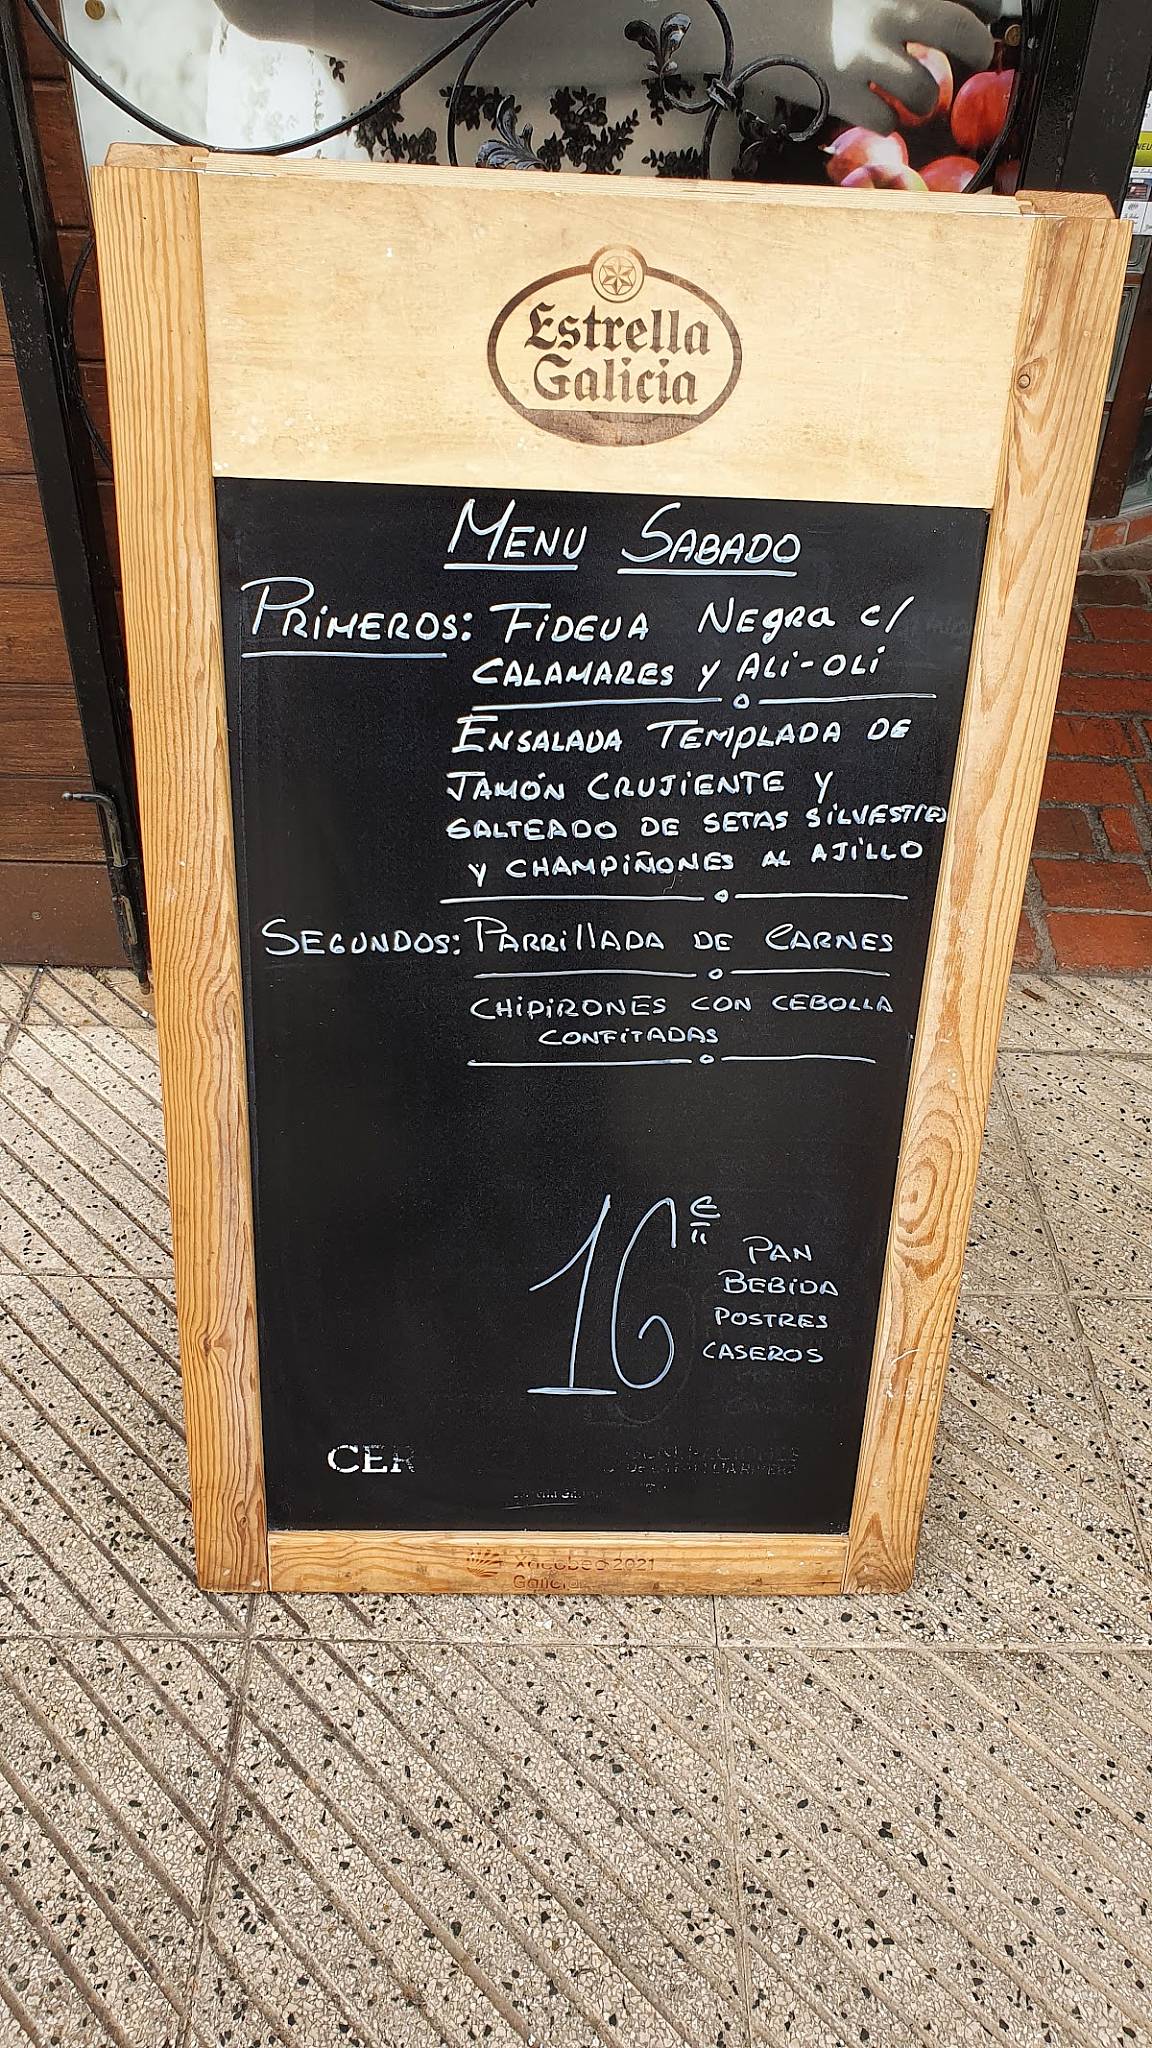 Estrella
Galicia
MENU SABADO
PRIMEROS: FIDEUA NEGRA C/
CALAMARES Y ALI-OLI
ENSALADA TEMPLADA DE
JAMÓN CRUJIENTE Y
SALTEADO DE SETAS SILVESTRES
Y CHAMPIÑONES AL AJILLO
SEGUNDOS: PARRILLADA DE CARNES
CHIPIRONES CON CEBOLLA
CONFITADAS
16€
PAN
BEBIDA
POSTRES
CASEROS
CER
Xacobeo 2021
Galicia